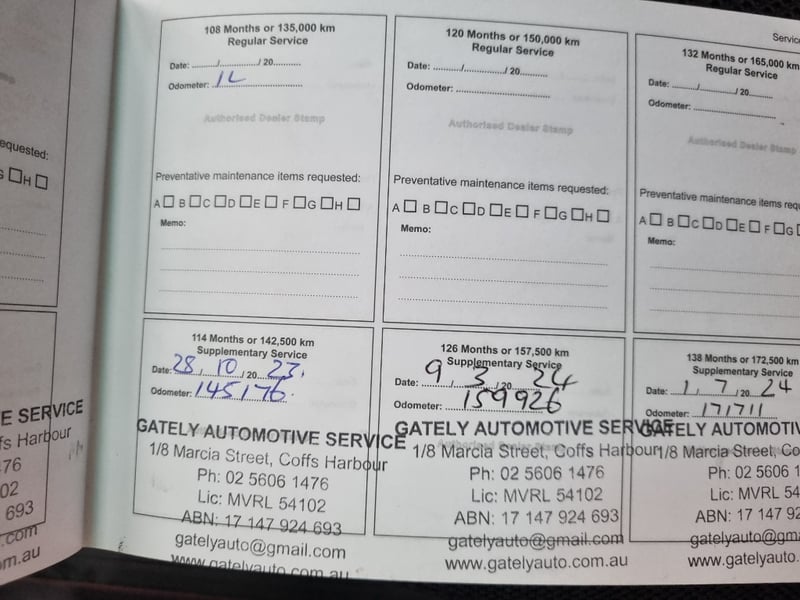 equested:
G H
108 Months or 135,000 km
Regular Service
Date: ......./............../ 20..........
Odometer:
Authorised Dealer Stamp
Preventative maintenance items requested:
A B C D E F G H
Memo:
120 Months or 150,000 km
Regular Service
Date: ......./............../ 20..........
Odometer: ..............................
Authorised Dealer Stamp
Preventative maintenance items requested:
A B C D E F G H
Memo:
Servic
132 Months or 165,000 km
Regular Service
Date: ......./............../ 20..........
Odometer: ..............................
Authorised Dealer Stamp
Preventative maintenance items requ
A B C D E F G
Memo:
E SERVICE
ffs Harbour
476
02
693
.com
m.au
114 Months or 142,500 km
Supplementary Service
Date: 28 / 10 / 20 23.
Odometer: 145176.
GATELY AUTOMOTIVE SERVICE
1/8 Marcia Street, Coffs Harbour
Ph: 02 5606 1476
Lic: MVRL 54102
ABN: 17 147 924 693
gatelyauto@gmail.com
www.gatelyauto.com.au
126 Months or 157,500 km
Supplementary Service
Date: 9 / 3 / 20 24
Odometer: 159926
GATELY AUTOMOTIVE SERVICE
1/8 Marcia Street, Coffs Harbour
Ph: 02 5606 1476
Lic: MVRL 54102
ABN: 17 147 924 693
gatelyauto@gmail.com
www.gatelyauto.com.au
138 Months or 172,500 km
Supplementary Service
Date: 1 / 7 / 20 24
Odometer: 171711
GATELY AUTOMOTIV
1/8 Marcia Street, Co
Ph: 02 5606 1
Lic: MVRL 54
ABN: 17 147 92
gatelyauto@gm
www.gatelyauto.